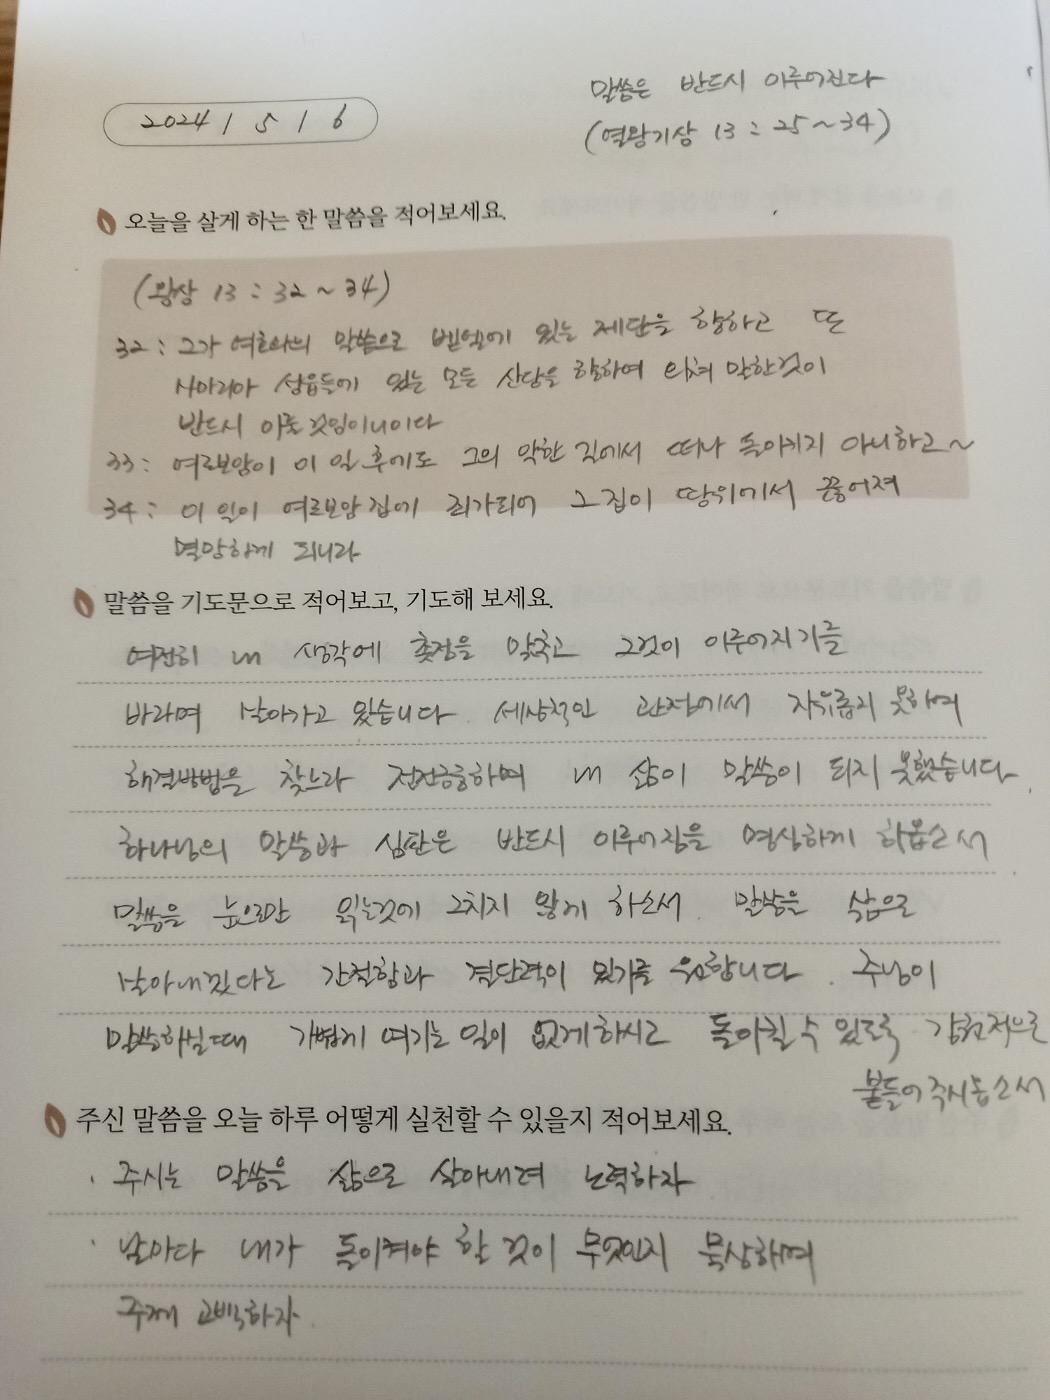 말씀은 반드시 이루어진다
2024 / 5 / 6
(열왕기상 13 : 25 ~ 34)
오늘을 살게 하는 한 말씀을 적어보세요.
(왕상 13 : 32 ~ 34)
32 : 그가 여호와의 말씀으로 벧엘에 있는 제단을 향하고 또
사마리아 성읍들에 있는 모든 산당을 향하여 외쳐 말한것이
반드시 이룰 것임이니이다
33 : 여로보암이 이 일 후에도 그의 악한 길에서 떠나 돌아키지 아니하고~
34 : 이 일이 여로보암 집에 죄가되어 그 집이 땅위에서 끊어져
멸망하게 되니라
말씀을 기도문으로 적어보고, 기도해 보세요.
여전히 내 생각에 촛점을 맞추고 그것이 이루어지기를
바라며 살아가고 있습니다. 세상적인 관점에서 자유롭지 못하여
해결방법을 찾느라 전전긍긍하며 내 삶이 말씀이 되지 못했습니다.
하나님의 말씀과 심판은 반드시 이루어짐을 명심하게 하옵소서
말씀을 눈으로만 읽는것에 그치지 않게 하소서. 말씀을 삶으로
살아내겠다는 간절함과 결단력이 있기를 원합니다. 주님이
말씀하실때 가볍게 여기는 일이 없게하시고 돌아킬 수 있도록 강권적으로
붙들어 주시옵소서
주신 말씀을 오늘 하루 어떻게 실천할 수 있을지 적어보세요.
· 주시는 말씀을 삶으로 살아내려 노력하자
· 날마다 내가 돌이켜야 할 것이 무엇인지 묵상하며
주께 고백하자.